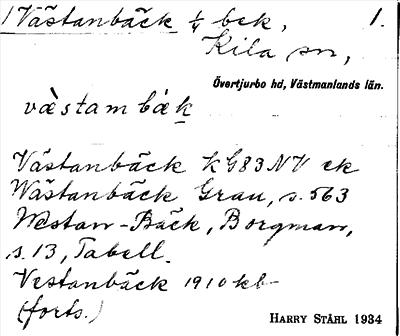 1 Västanbäck 1/4 bek, 1.
Kila sn,
Övertjurbo hd, Västmanlands län.
væ̀stambæ̀k
Västanbäck kG83NV ek
Wästanbäck Grau, s. 563
Westan-Bäck, Borgman,
s. 13, Tabell.
Vestanbäck 1910 kb
(forts.)
HARRY STÅHL 1934